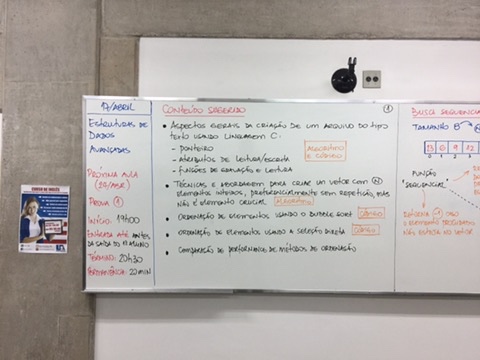 17/ABRIL
ESTRUTURAS DE
DADOS
AVANÇADAS
PRÓXIMA AULA
PROVA 1
INÍCIO: 19h00
ENTRADA ATÉ ANTES
DA SAÍDA DO 1º ALUNO
TÉRMINO: 20h30
PERMANÊNCIA: 20 MIN
CONTEÚDO SUGERIDO
1
• ASPECTOS GERAIS DA CRIAÇÃO DE UM ARQUIVO DO TIPO
TEXTO USANDO LINGUAGEM C:
- PONTEIRO
- ATRIBUTOS DE LEITURA/ESCRITA
- FUNÇÕES DE GRAVAÇÃO E LEITURA
ALGORITMO
E CÓDIGO
• TÉCNICAS E ABORDAGEM PARA CRIAR UM VETOR COM N
ELEMENTOS INTEIROS, PREFERENCIALMENTE SEM REPETIÇÃO, MAS
NÃO É ELEMENTO CRUCIAL
ALGORITMO
• ORDENAÇÃO DE ELEMENTOS USANDO O BUBBLE SORT
CÓDIGO
• ORDENAÇÃO DE ELEMENTOS USANDO A SELEÇÃO DIRETA
CÓDIGO
• COMPARAÇÃO DE PERFORMANCE DE MÉTODOS DE ORDENAÇÃO
BUSCA SEQUENCIA
TAMANHO 8
13 6 9 12
0 1 2 3
FUNÇÃO
SEQUENCIAL
RETORNA -1 CASO
O ELEMENTO PROCURADO
NÃO ESTEJA NO VETOR
CURSO DE INGLÊS